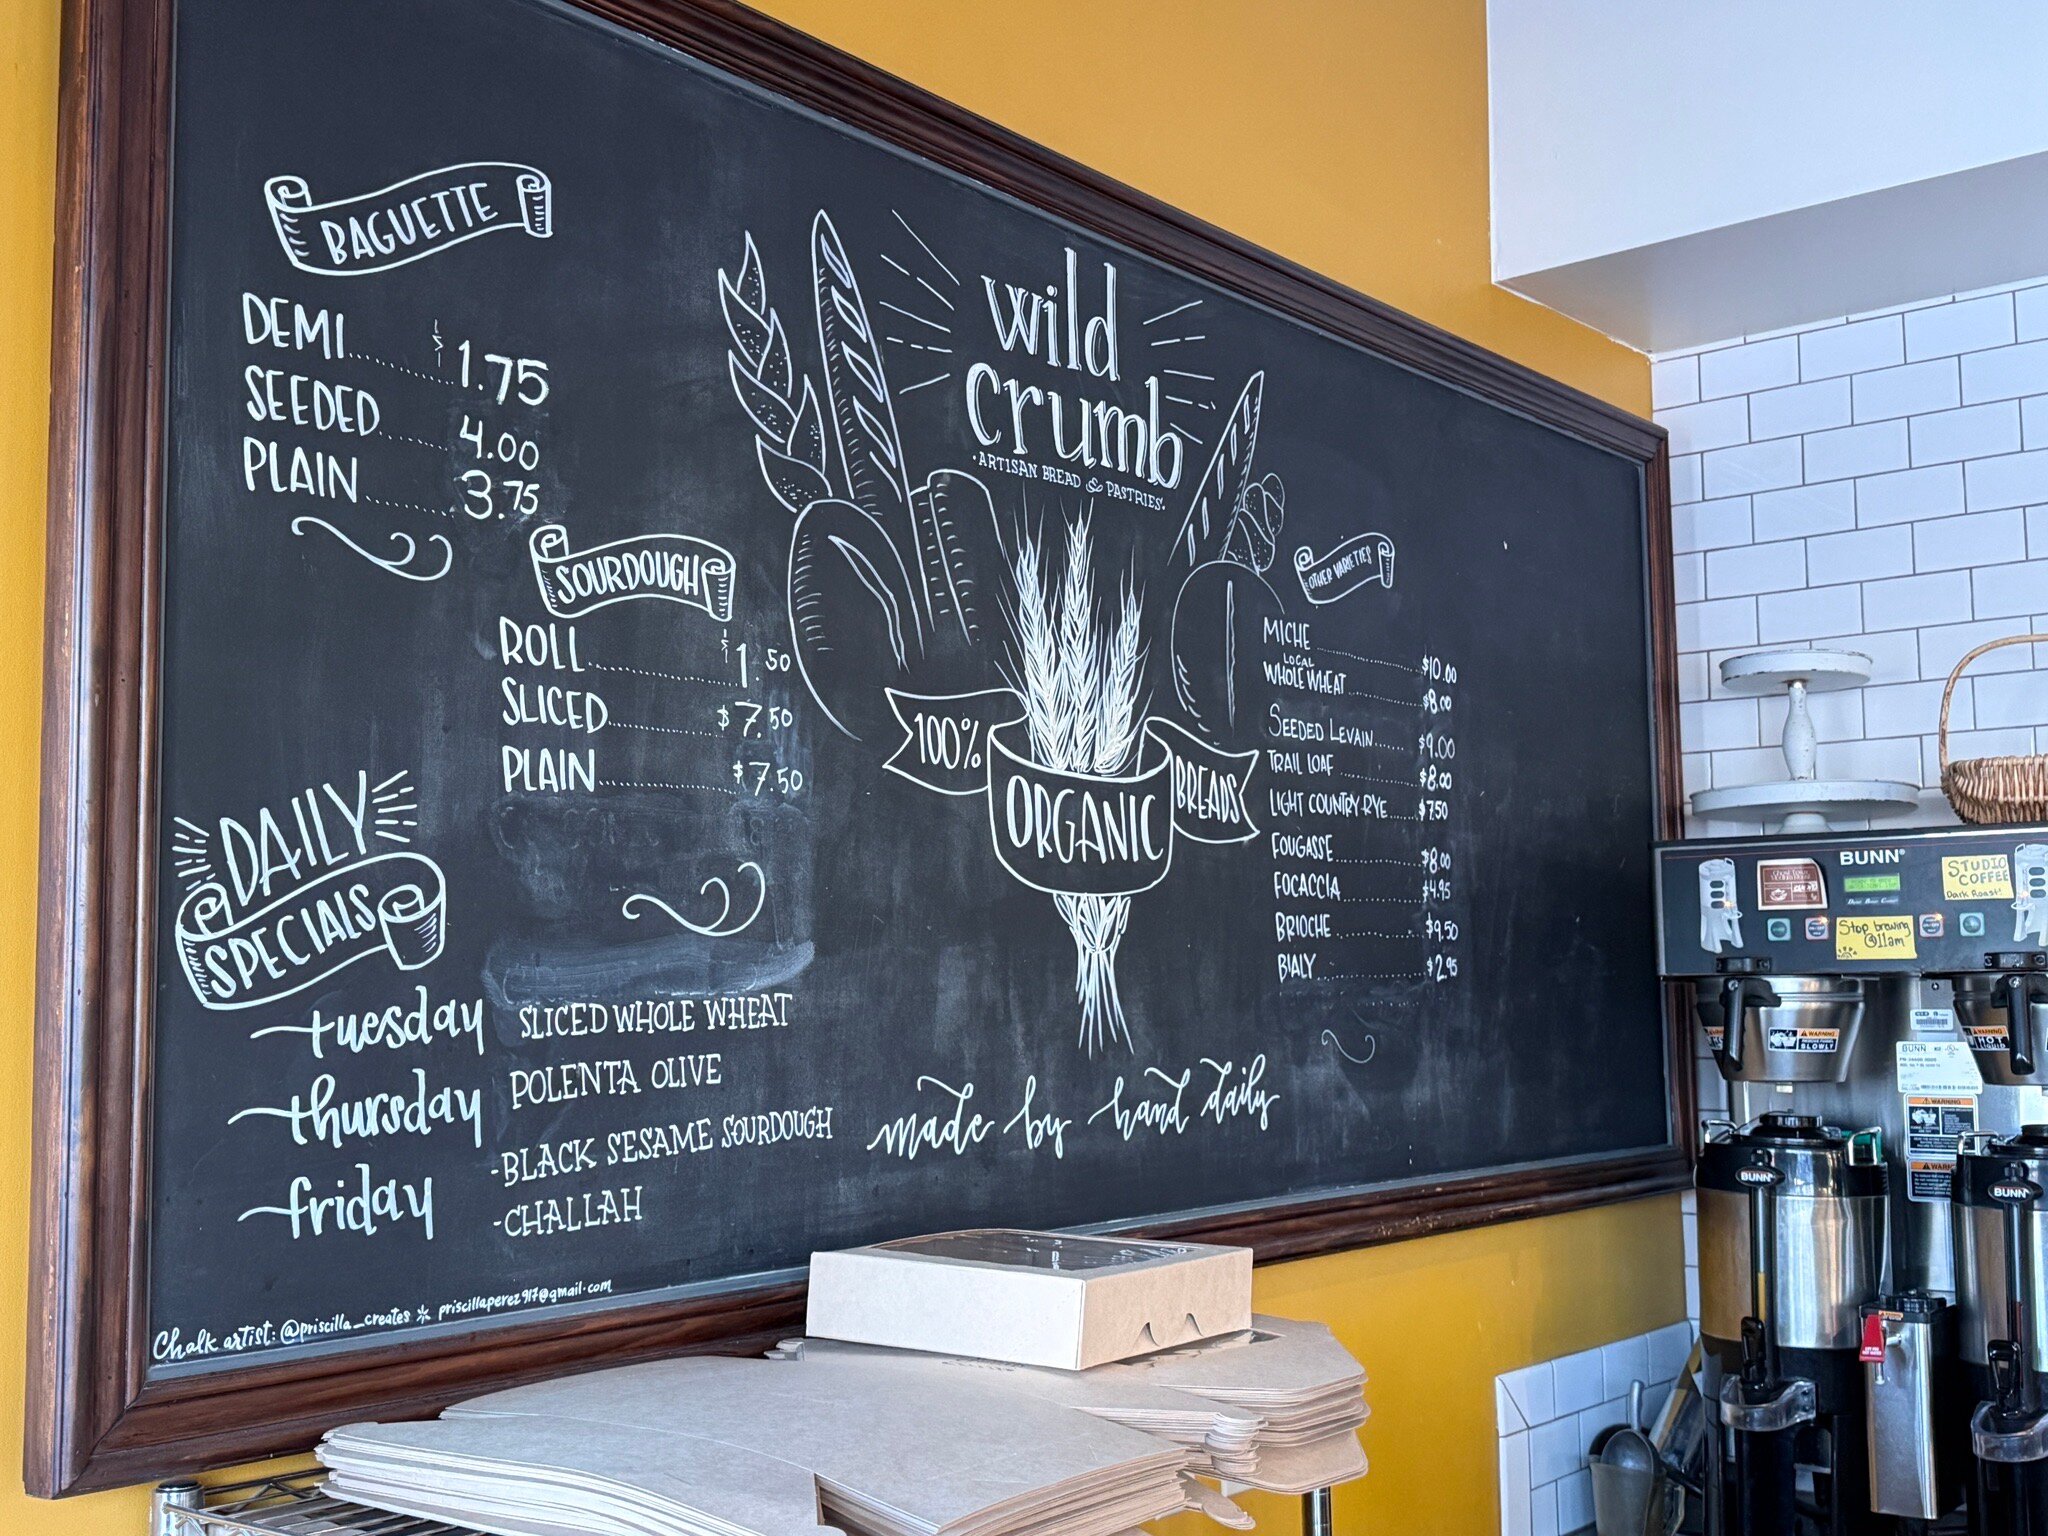 BAGUETTE
DEMI.......... $1.75
SEEDED...... 4.00
PLAIN....... 3.75
SOURDOUGH
ROLL............ $1.50
SLICED............ $7.50
PLAIN............ $7.50
DAILY
SPECIALS
tuesday SLICED WHOLE WHEAT
thursday POLENTA OLIVE
friday -BLACK SESAME SOURDOUGH
-CHALLAH
Chalk artist: @priscilla_creates priscillaperez917@gmail.com
wild
crumb
·ARTISAN BREAD & PASTRIES·
100%
ORGANIC
BREADS
made by hand daily
OTHER VARIETIES
MICHE............ $10.00
LOCAL
WHOLE WHEAT............ $8.00
SEEDED LEVAIN...... $9.00
TRAIL LOAF............ $8.00
LIGHT COUNTRY-RYE..... $7.50
FOUGASSE............ $8.00
FOCACCIA............ $4.95
BRIOCHE............ $9.50
BIALY............ $2.95
BUNN
STUDIO
COFFEE
Dark Roast!
Stop brewing
@11am
WARNING
SLOWLY
WARNING
HOT
LIQUID
BUNN
WARNING
WARNING
BUNN
BUNN